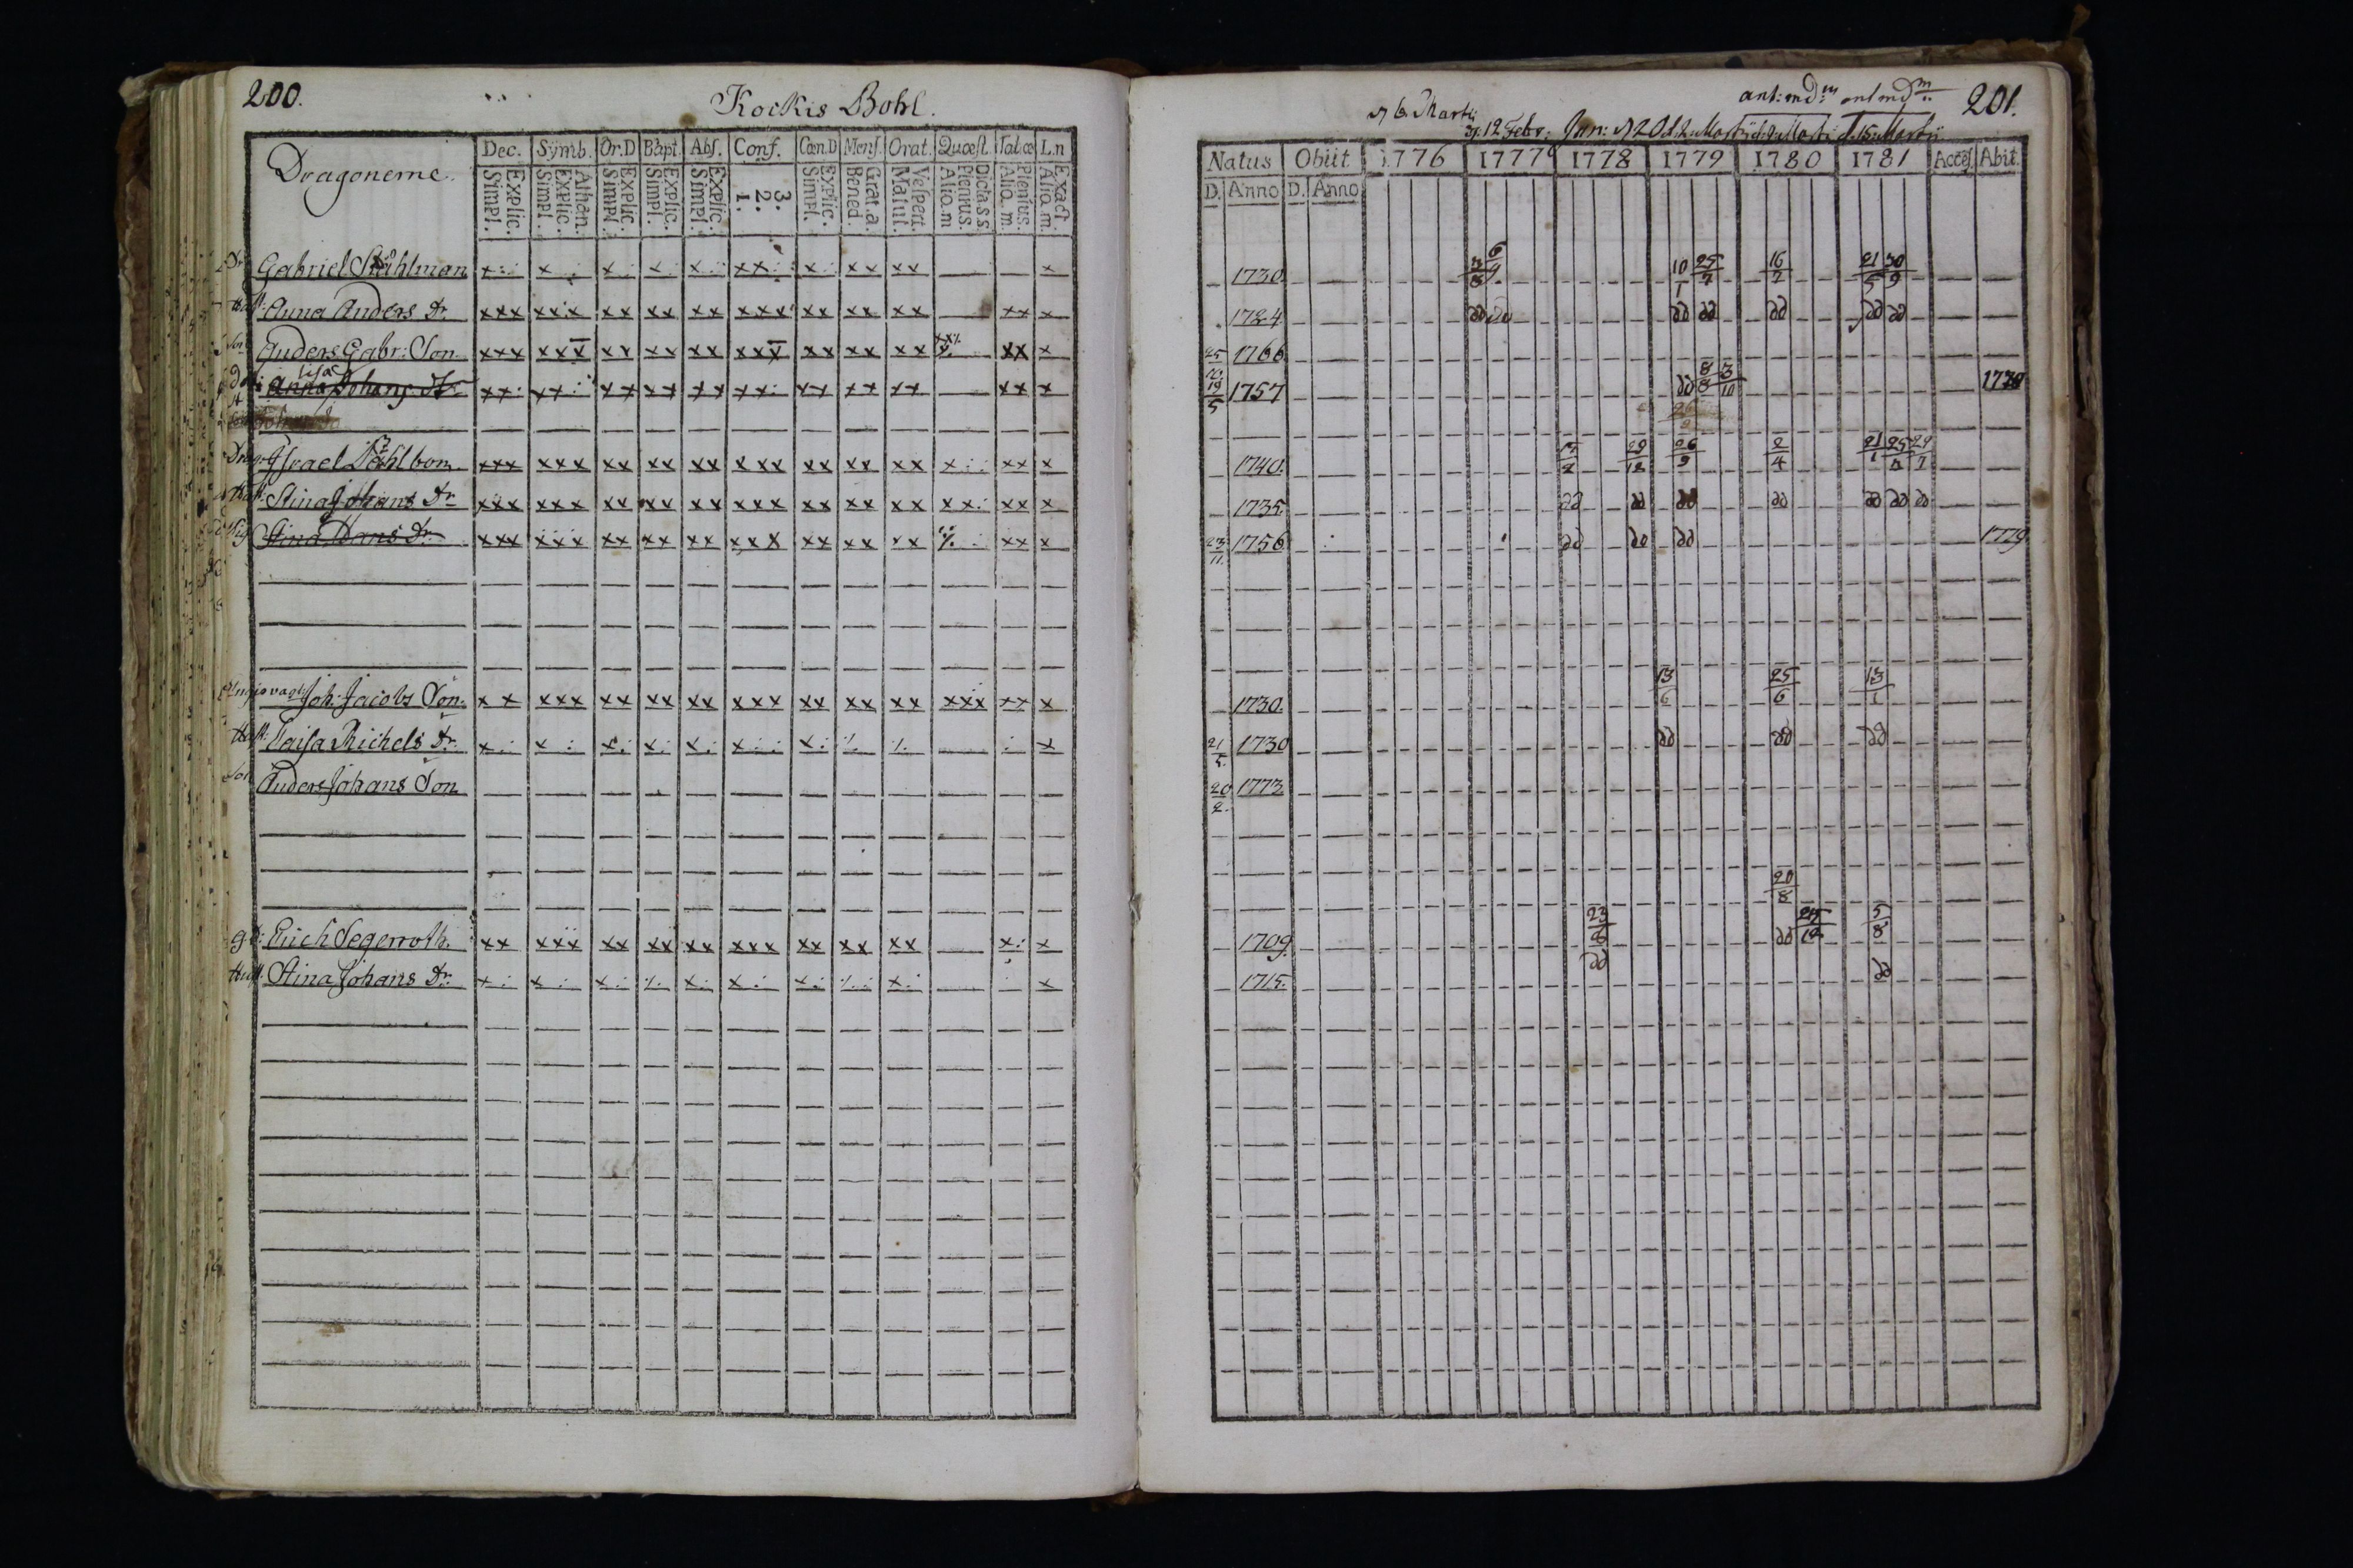 200.
Kockis Bohl.
Dragonerne.
Dec. Symb. Or.D Bapt. Abs. Conf. Cœn.D Mens. Orat. Quæst. Tabœ L.n
Simpl. Explic. Simpl. Explic. Athan. Simpl. Explic. Simpl. Explic. Simpl. Explic. 1. 2. 3. Simpl. Explic. Bened. Grat. a. Matut. Vespert. Alio. m Plenius. Dicta s.s Alio. m. Plenius. Alio. m. Exact.
Dr. Gabriel Ståhlman x·: x·: x·: x·: x·: xx·: x·: xx xx x
Hust: Anna Anders Dr. xxx xxx xx xx xx xxx xx xx xx xx x
Son Anders Gabr: Son xxx xxx xx xx xx xxx xx xx xx xx x
Lisa
Anna Johans Dr. xx· xx: xx xx xx xx: xx xx xx xx x
Drag: Israel xxx xxx xx xx xx xxx xx xx xx x·: xx x
Hust: Stina Johans Dr xxx xxx xx xx xx xxx xx xx xx xx· xx x
Pig Stina Hans Dr xxx xxx xx xx xx xxx xx xx xx ·/. xx x
Joh: Jacobs Son. xx xxx xx xx xx xxx xx xx xx xxx xx x
Hust: Caisa Michels Dr. x·: x·: x: x: x: x·: x: ·/. ·/. : x
Son Anders Johans Son
Erich Segerroth. xx xxx xx xx xx xxx xx xx xx x: x
Hust. Stina Johans Dr. x·: x·: x·: ·/. x·: x·: x·: ·/. x: x
201.
d 6 Martii
12 Febr: Jan:
Natus Obiit 1776 1777 1778 1779 1780 1781 Acces. Abit.
D. Anno D. Anno
1730. 3/8 6/9 10/1 25/7 16/2 21/5 30/9
1724 dd dd dd dd dd dd dd
25/10 1766
19/5 1757 dd 8/8 3/10
1740. 29/12 26/9 2/4 21/1
1735. dd dd dd dd dd dd dd
23/11 1756 dd dd dd 1779
1730. 13/6 25/6 13/1
21/5. 1730 dd dd dd
20/2. 1773
20/8
1709. 23/6 dd 5/8
1715. dd dd